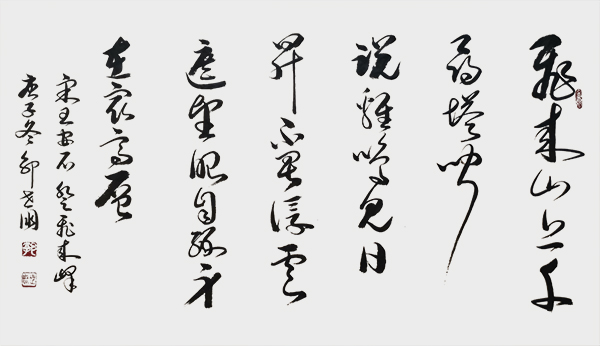 飛來山上千
尋塔聞
說雞鳴見日
昇不畏浮雲
遮望眼自緣身
在最高層
宋王安石登飛來峰
庚子冬